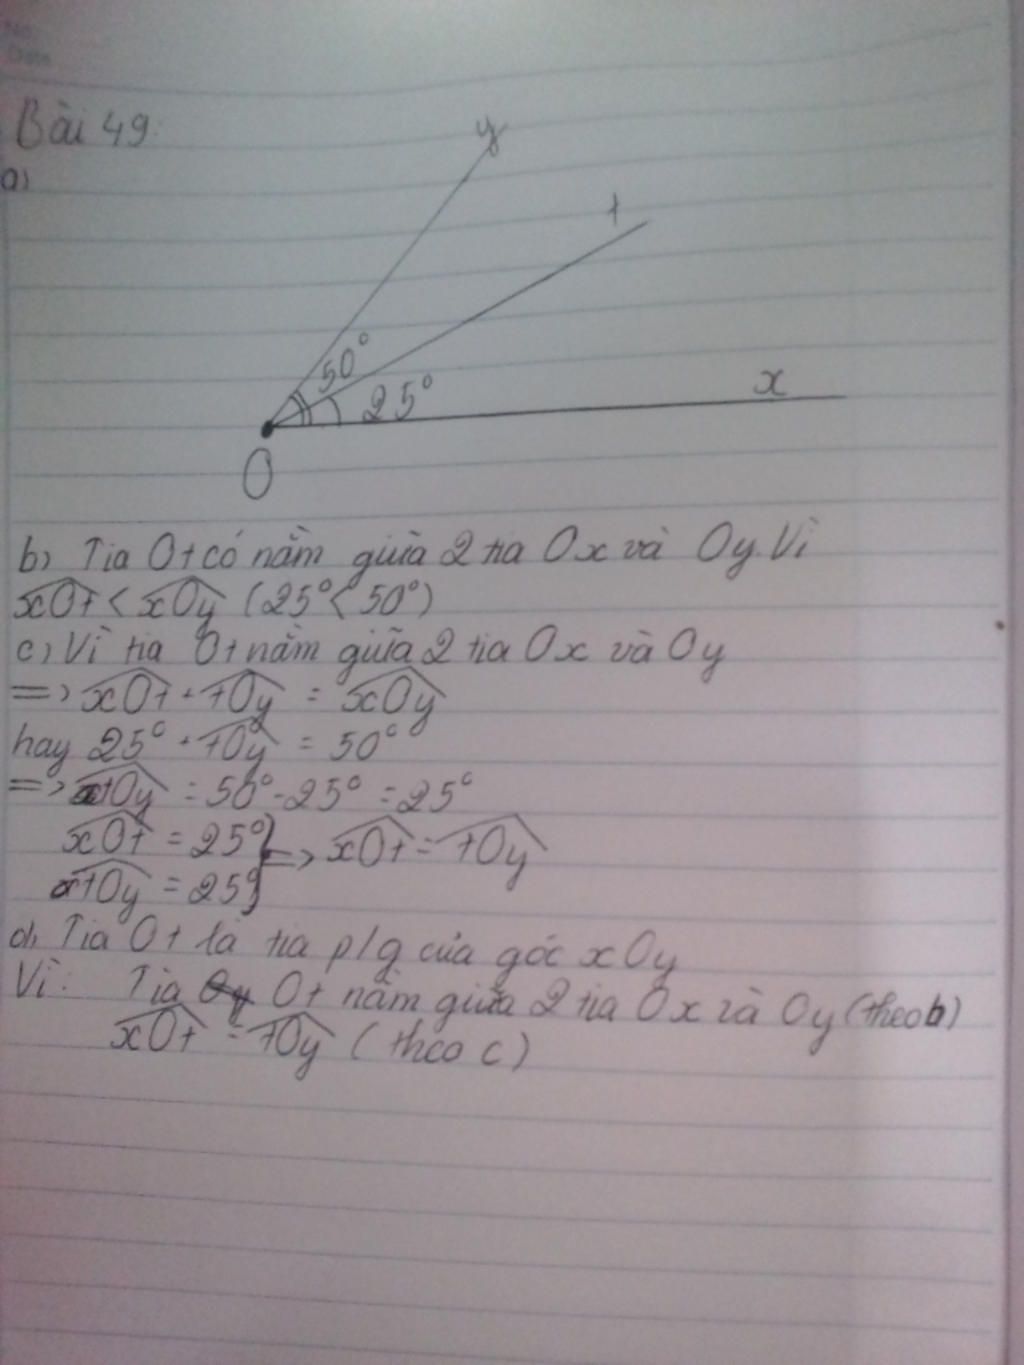 No.
Date
Bài 49:
a)
y
t
50°
x
25°
O
b) Tia Ot có nằm giữa 2 tia Ox và Oy. Vì
xOt < xOy (25° < 50°)
c) Vì tia Ot nằm giữa 2 tia Ox và Oy
=> xOt + tOy = xOy
hay 25° + tOy = 50°
=> tOy = 50° - 25° = 25°
xOt = 25° } => xOt = tOy
tOy = 25° }
d) Tia Ot là tia p/g của góc xOy
Vì: Tia Ot nằm giữa 2 tia Ox và Oy (theo b)
xOt = tOy (theo c)